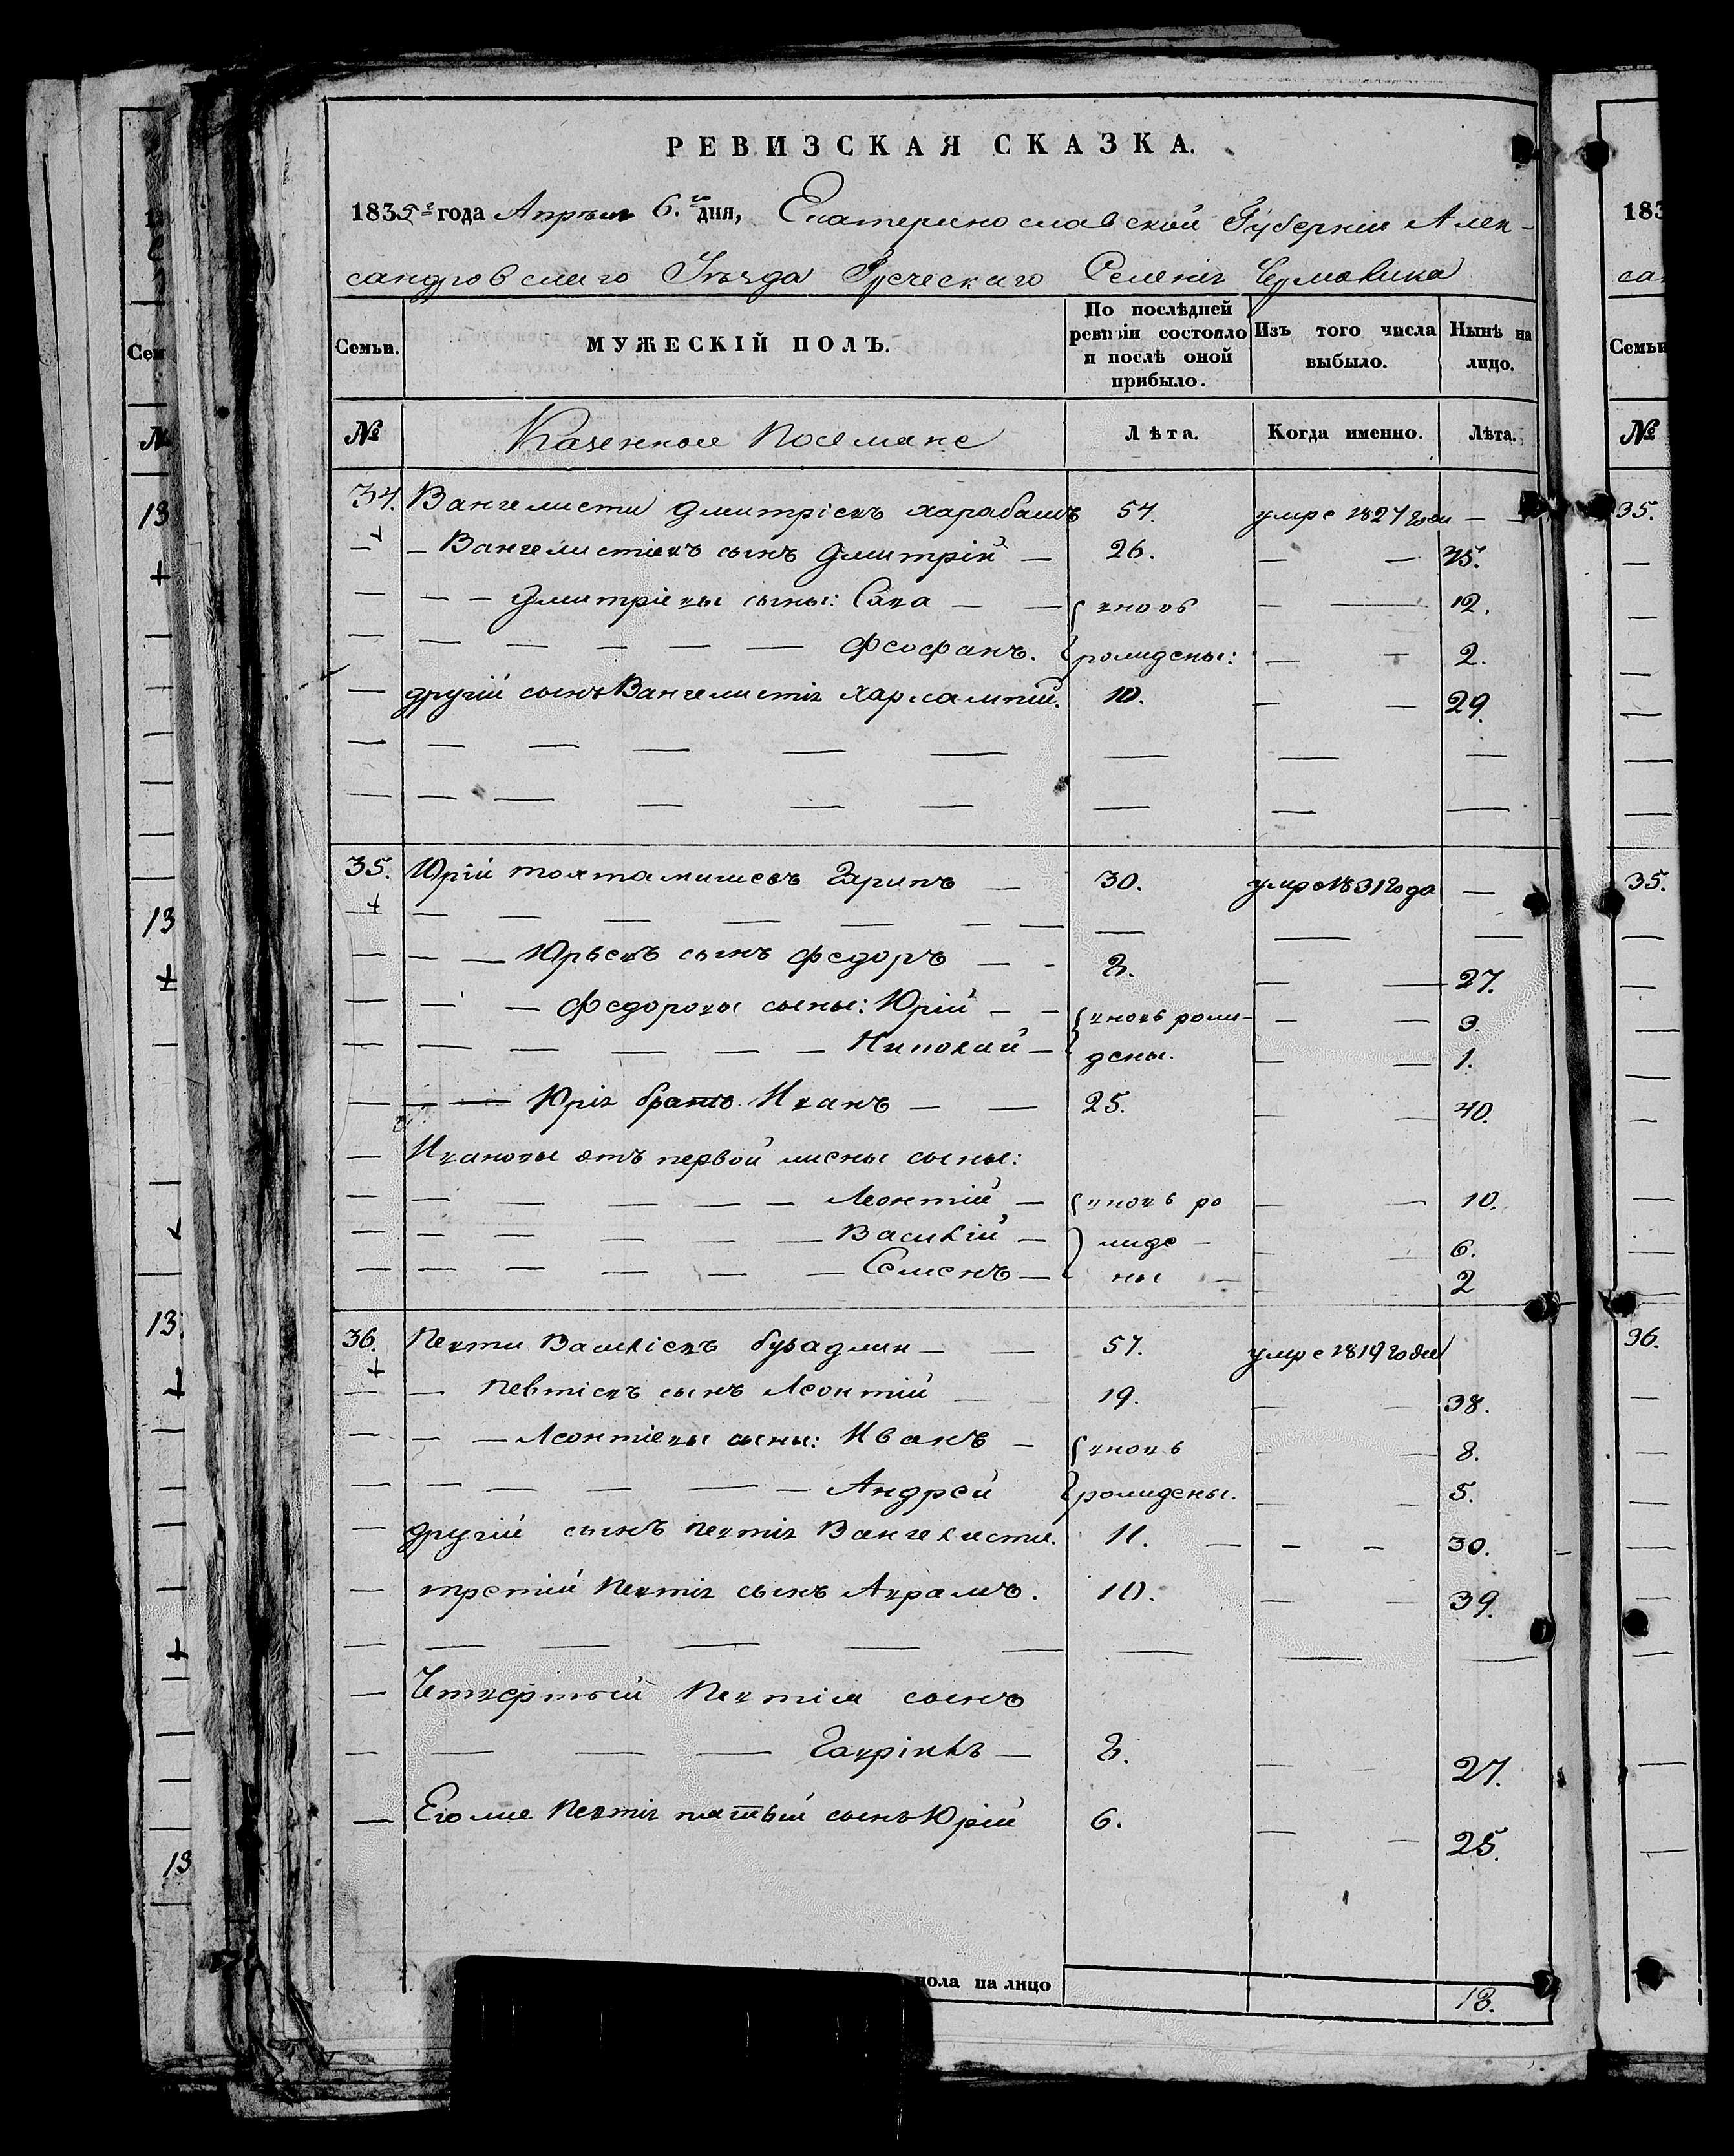 РЕВИЗСКАЯ СКАЗКА.
1835го года Апрѣля 6.го дня, Екатеринославской Губерніи Алек-
сандровскаго Уѣзда Греческаго Селенія Чермалика
Семьи. МУЖЕСКІЙ ПОЛЪ. По послѣдней ревизіи состояло и послѣ оной прибыло. Изъ того числа выбыло. Нынѣ на лицо.
№ Казенные Поселяне Лѣта. Когда именно. Лѣта.
34. Вангелисти Дмитріевъ Харабашъ 54. умре 1827 года — —
— — Вангелистіевъ сынъ Дмитрій — 26. — — 45.
— — — Дмитріевы сыны: Сава — — { вновь — — 12.
— — — — — — Феофанъ. { рожденые: — — 2.
— другій сынъ Вангелистія Харлампій. 10. — — 29.
35. Юрій Тохтамишевъ Гарипъ — 30. умре 1831 года —
— — — Юрьевъ сынъ Федоръ — - 8. — — 27.
— — — Федоровы сыны: Юрій — - { вновь рож- — — 3.
— — — — — — Николай — { дены. — — 1.
— — — Юрія братъ Иванъ — — 25. — — 40.
— Ивановы отъ первой жены сыны:
— — — — — — Леонтій — { вновь ро — — 10.
— — — — — — Василій — } жде — — — 6.
— — — — — — Семенъ — { ны — — 2
36. Певти Василіевъ Бузаджи — — 57. умре 1819 года
— — Певтіевъ сынъ Леонтій — 19. — — 38.
— — — Леонтіевы сыны: Иванъ — { вновь — — 8.
— — — — — — — Андрей { рождены. — — 5.
— другій сынъ Певтія Вангелисти. 11. — — — 30.
— третій Певтія сынъ Аврамъ. 10. — — 39.
— Четвертый Певтія сынъ
— — — — Гавріилъ — 8. — — 27.
— Его же Певтія пятый сынъ Юрій 6. — — 25.
пола на лицо 18.